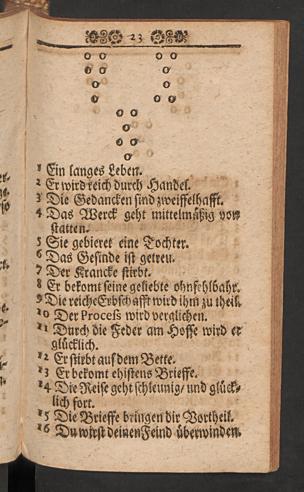 23
1 Ein langes Leben.
2 Er wird reich durch Handel.
3 Die Gedancken sind zweiffelhafft.
4 Das Werck geht mittelmäßig von
statten.
5 Sie gebieret eine Tochter.
6 Das Gesinde ist getreu.
7 Der Krancke stirbt.
8 Er bekomt seine geliebte ohnfehlbahr.
9 Die reiche Erbschafft wird ihm zu theil.
10 Der Proceß wird verglichen.
11 Durch die Feder am Hoffe wird er
glücklich.
12 Er stirbt auf dem Bette.
13 Er bekomt ehistens Brieffe.
14 Die Reise geht schleunig/ und glück-
lich fort.
15 Die Brieffe bringen dir Vortheil.
16 Du wirst deinen Feind überwinden.